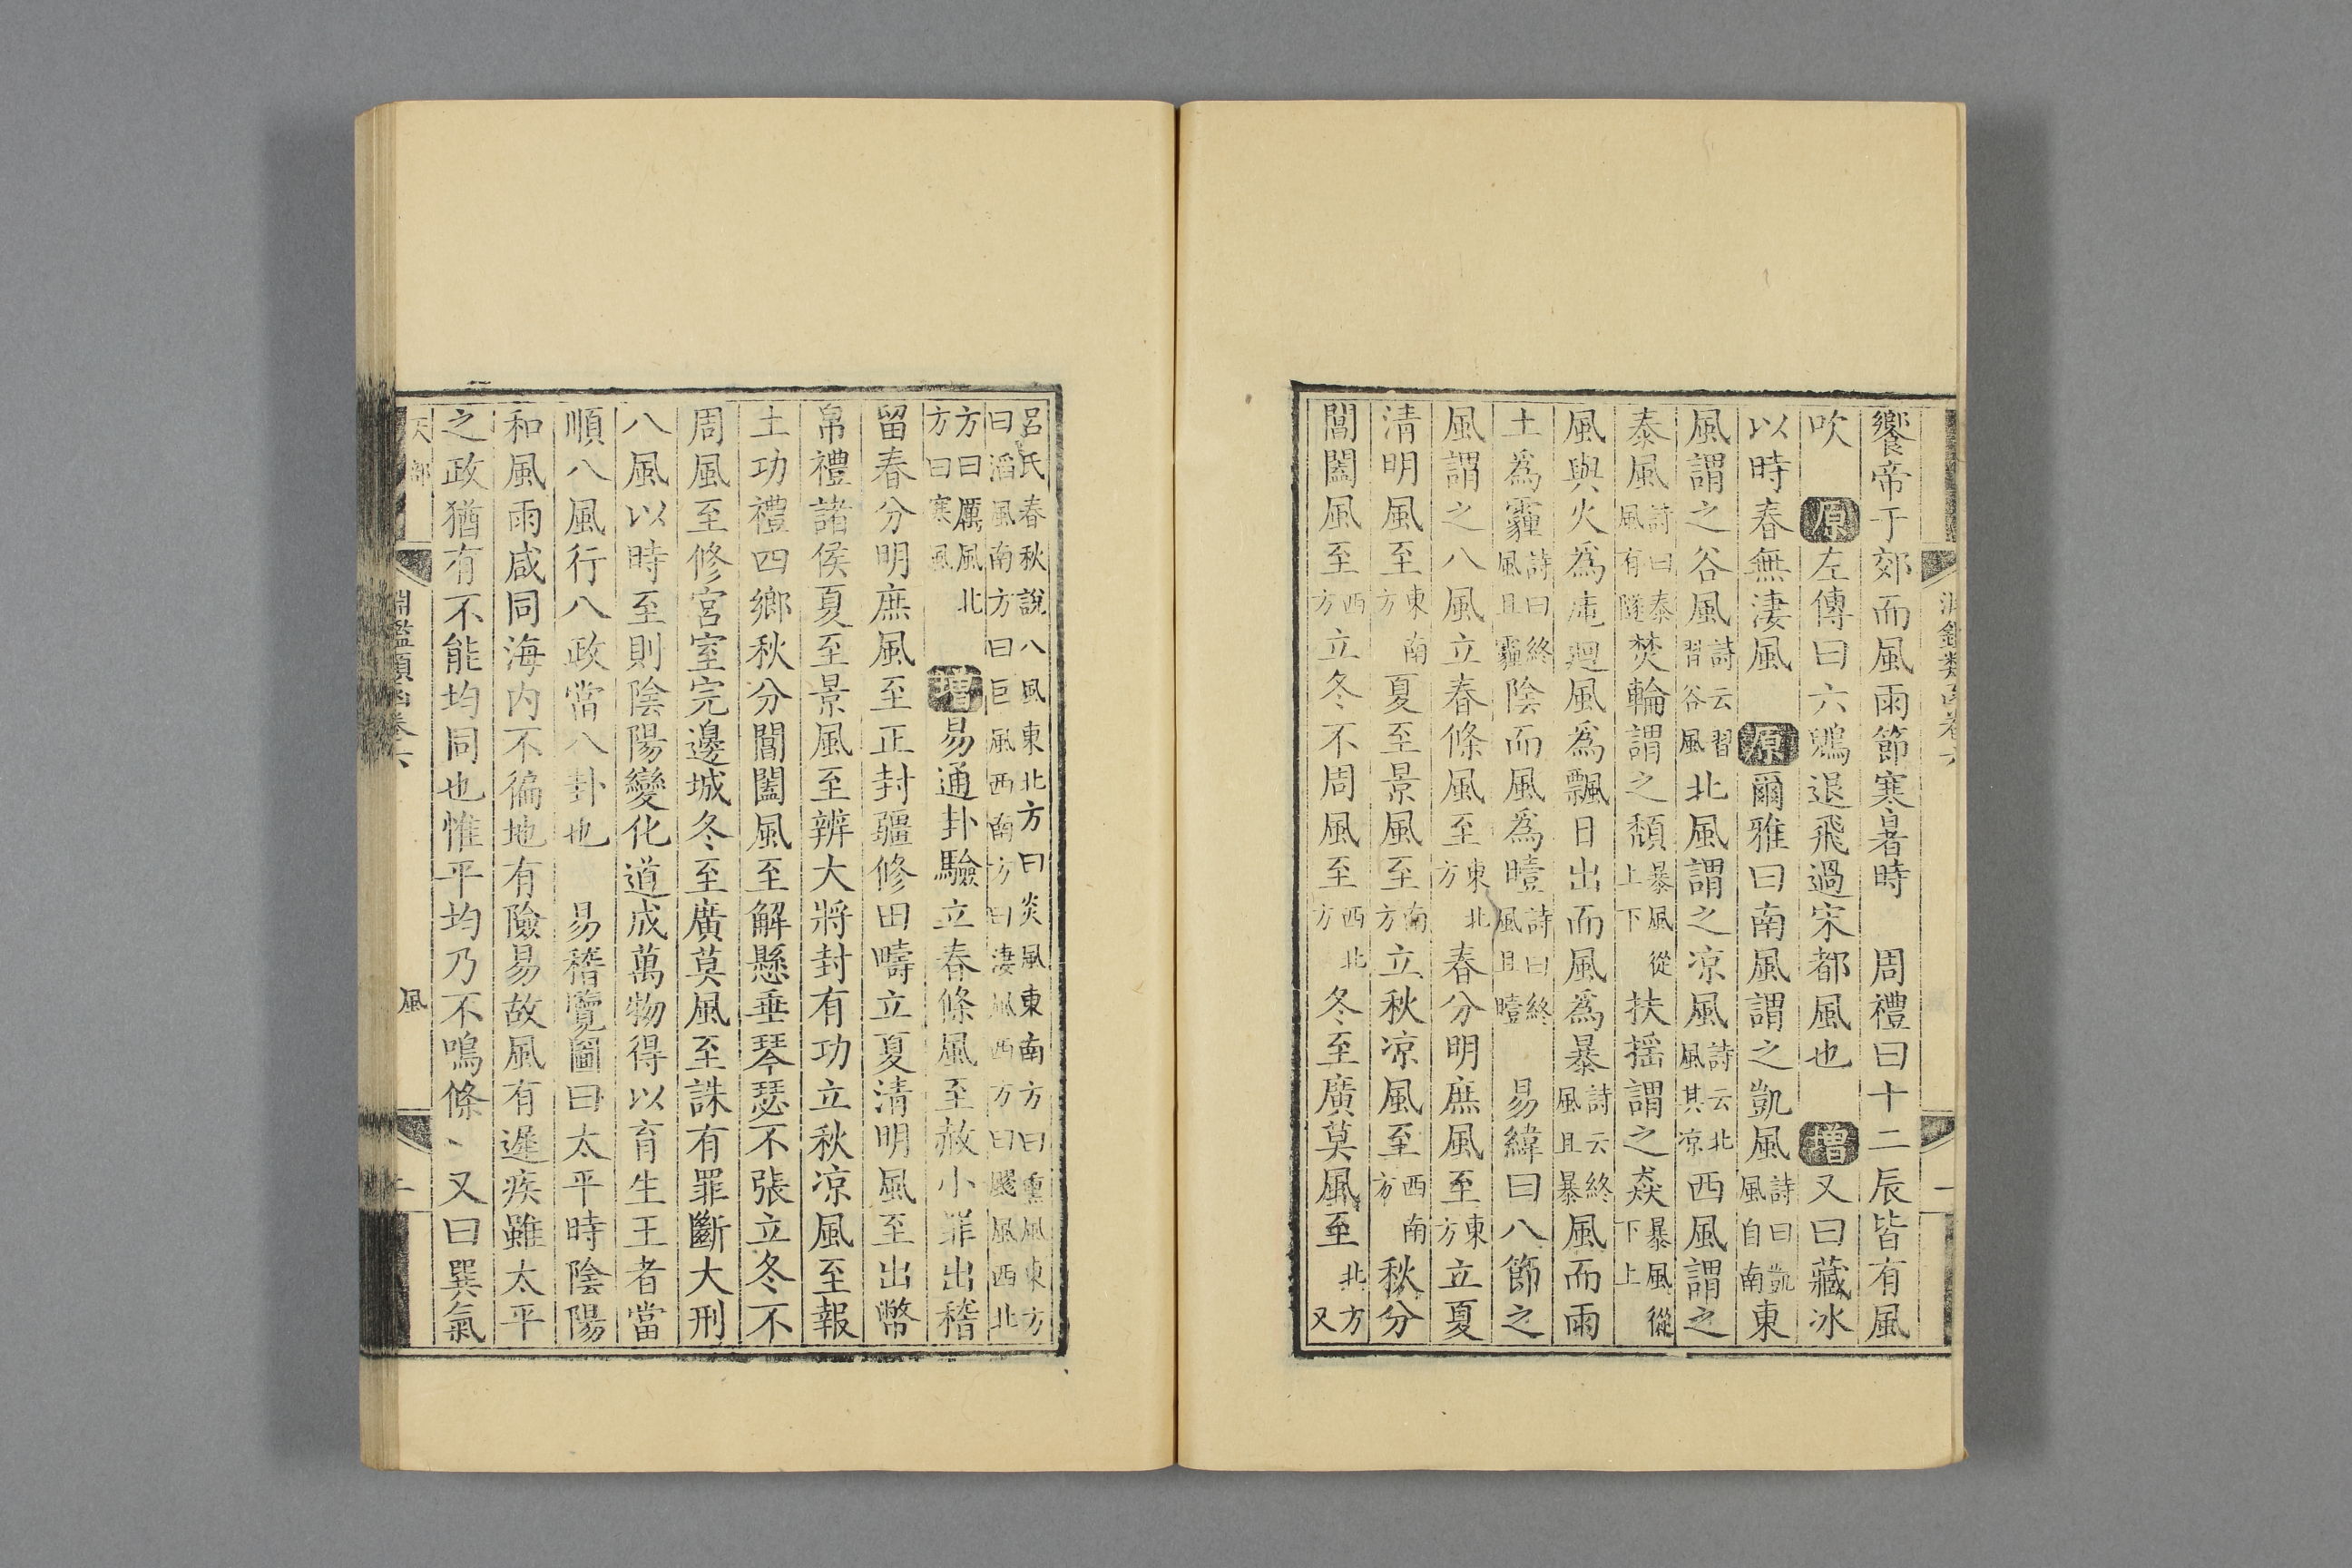 饗帝于郊而風雨節寒暑時 周禮曰十二辰皆有風
吹 原左傳曰六鷁退飛過宋都風也 增又曰藏冰
以時春無淒風 原爾雅曰南風謂之凱風詩曰凱風自南東
風謂之谷風詩云習習谷風北風謂之凉風詩云北風其凉西風謂之
泰風詩曰泰風有隧焚輪謂之頹暴風從上下扶揺謂之猋暴風從下上
風與火為庉廻風為飄日出而風為暴詩云終風且暴風而雨
土為霾詩曰終風且霾陰而風為曀詩曰終風且曀 易緯曰八節之
風謂之八風立春條風至東北方春分明庶風至東方立夏
清明風至東南方夏至景風至南方立秋凉風至西南方秋分
閶闔風至西方立冬不周風至西北方冬至廣莫風至北方又
呂氏春秋說八風東北方曰炎風東南方曰熏風東方
曰滔風南方曰巨風西南方曰淒風西方曰飂風西北
方曰厲風北
方曰寒風 增易通卦驗立春條風至赦小罪出稽
留春分明庶風至正封疆修田疇立夏清明風至出幣
帛禮諸侯夏至景風至辨大將封有功立秋凉風至報
土功禮四鄉秋分閶闔風至解懸垂琴瑟不張立冬不
周風至修宮室完邊城冬至廣莫風至誅有罪斷大刑
八風以時至則陰陽變化道成萬物得以育生王者當
順八風行八政當八卦也 易稽覽圖曰太平時陰陽
和風雨咸同海内不徧地有險易故風有遲疾雖太平
之政猶有不能均同也惟平均乃不鳴條、又曰巽氣
天部
淵鑑類函卷六
風
二